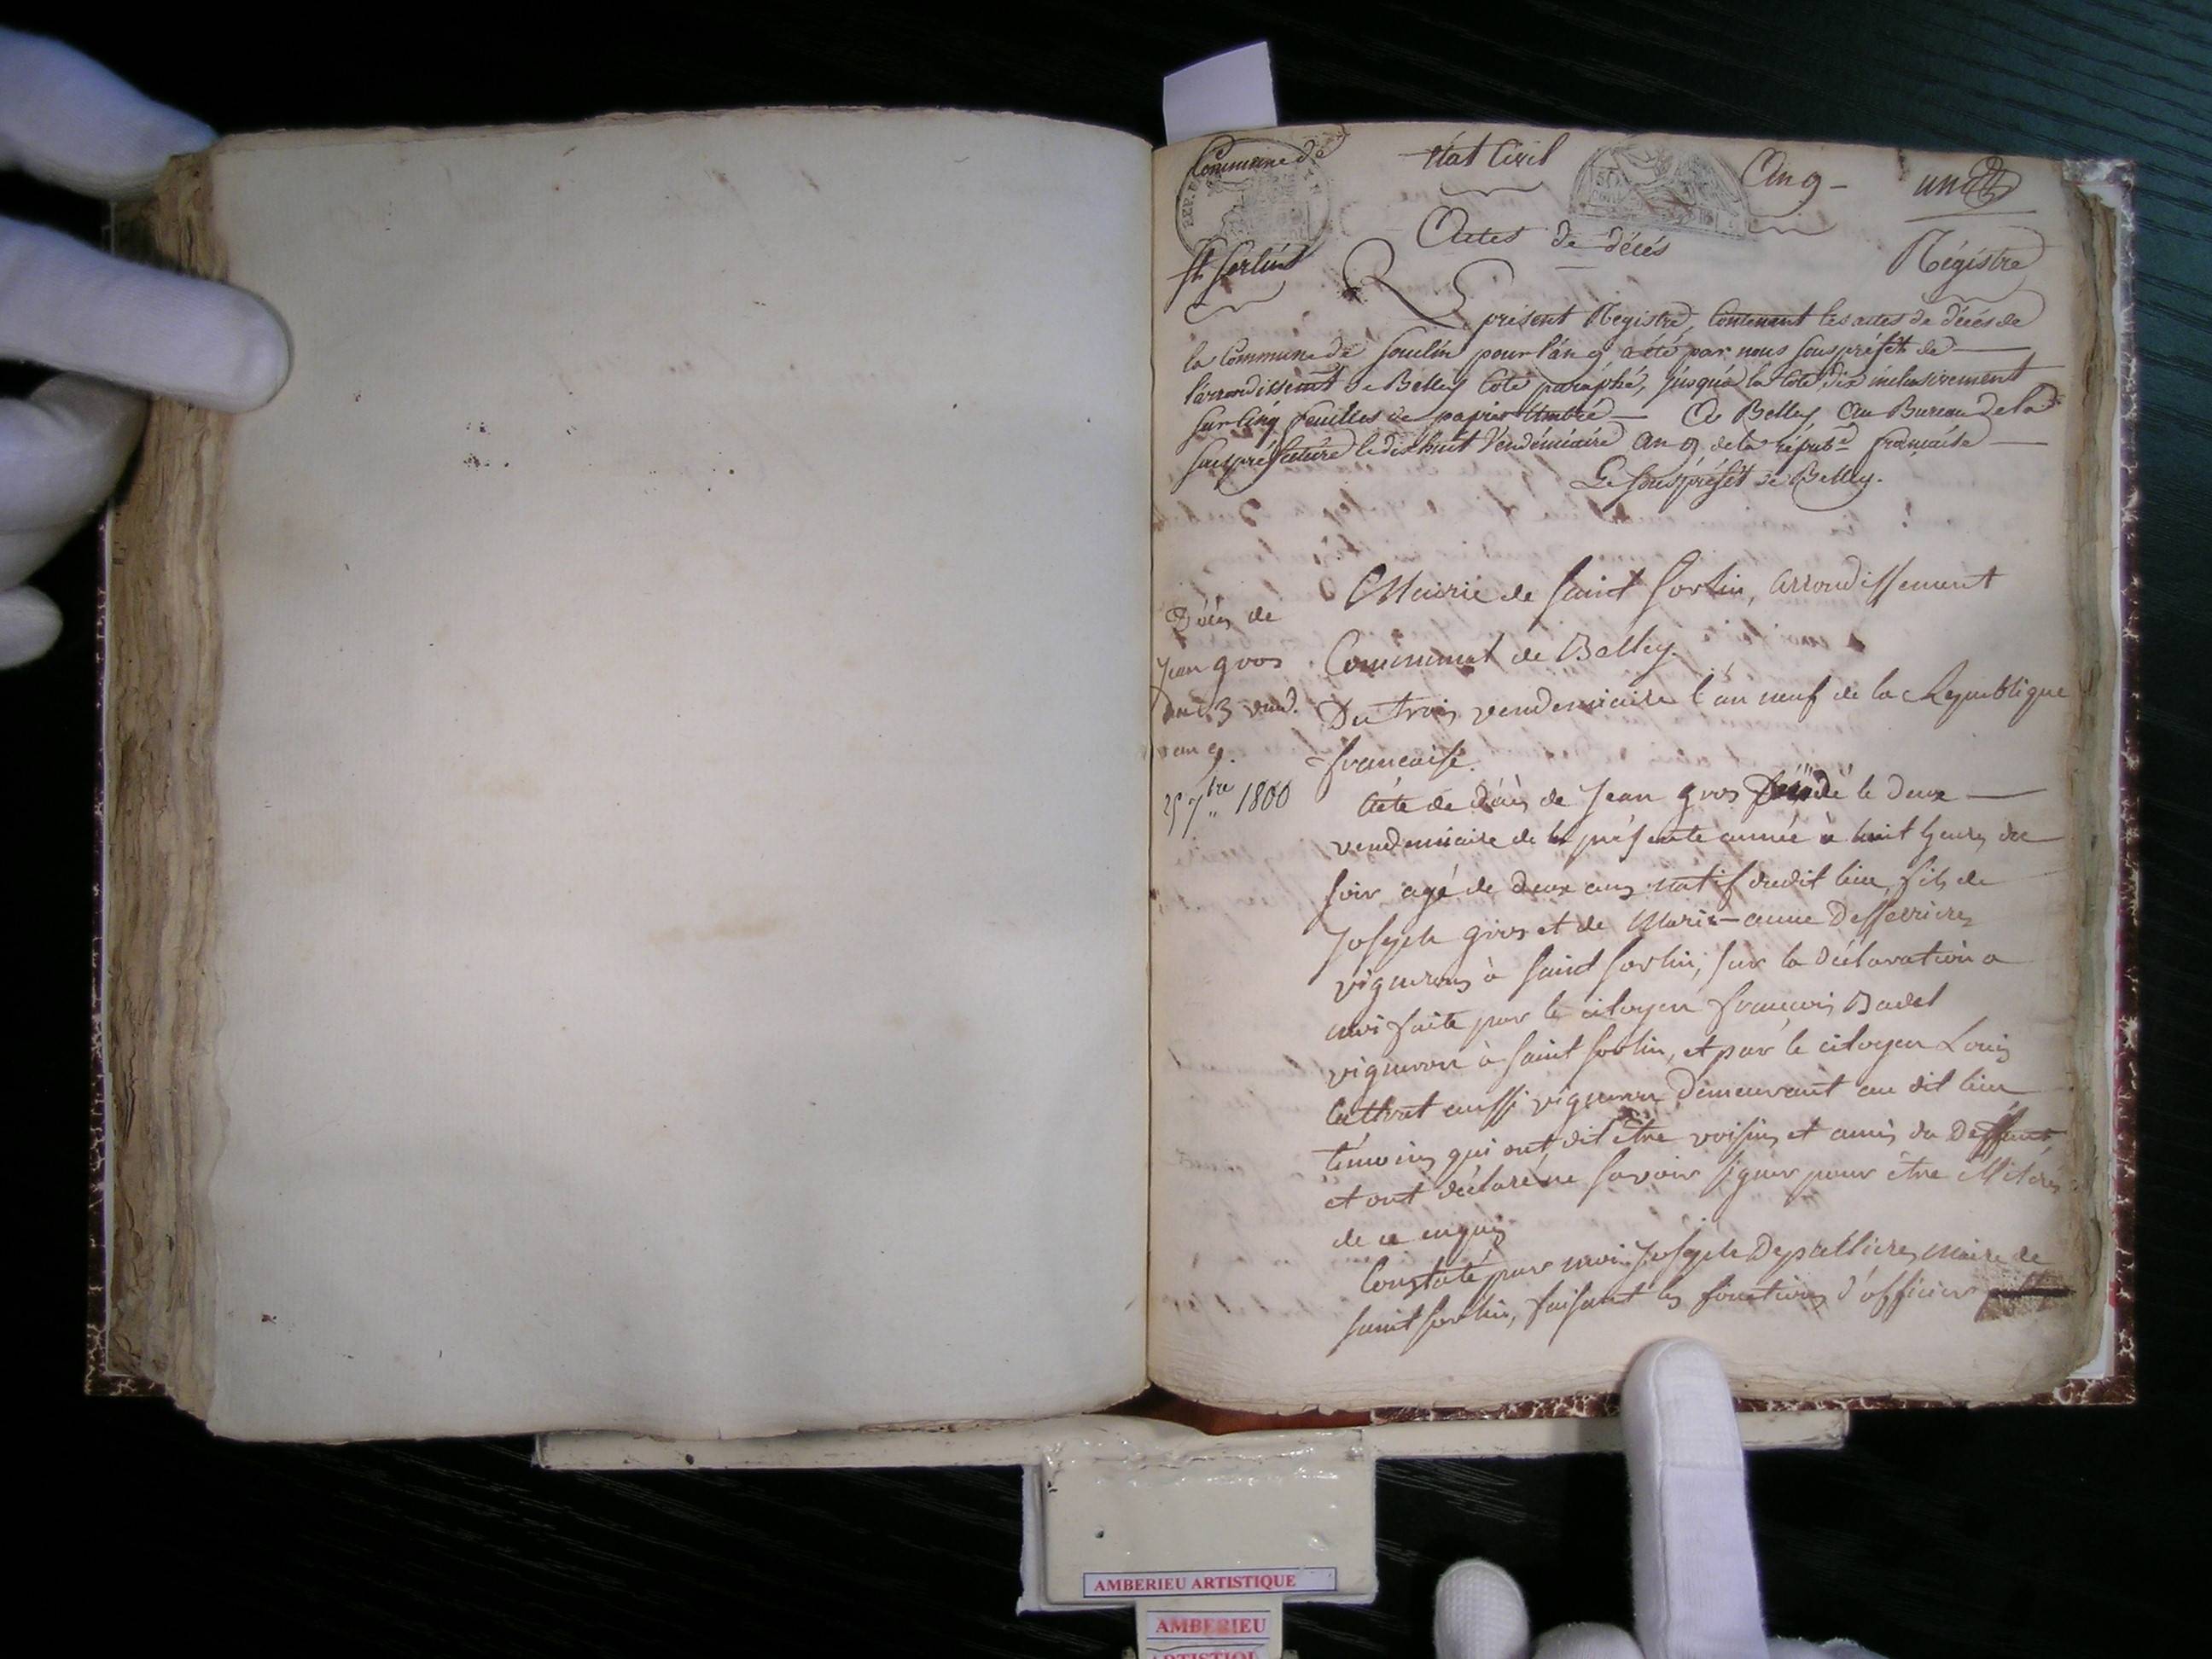 Commune de
St Sorlin
Etat Civil
An 9 -
un
Actes de décès
Régistre
REP. F
50
Le présent Régistre, contenant les actes de décès de
la Commune de Soulin pour l'an 9 a été par nous souspréfet de
l'arrondissemt de Belley coté paraphé, jusqu'à la cote dix inclusivement
sur cinq feuilles de papier timbré - A Belley Au Bureau de la
souspréfecture le dix huit Vendémiaire An 9 de la répub.e française
Le souspréfet de Belley.
Décès de
Jean gros
du 3 vend.
an 9.
25 7bre 1800
Mairie de Saint Sorlin, arrondissement
Communal de Belley.
Du trois vendemiaire l'an neuf de la Republique
francaise.
Acte de décès de Jean gros décédé le deux
vendemiaire de la présente année à huit heures du
soir agé de deux ans natif dudit lieu, fils de
Joseph gros et de Marie-anne Desserrieres
vignerons à Saint Sorlin, sur la déclaration a
moi faite par le citoyen francois Badel
vigneron à Saint Sorlin, et par le citoyen Louis
aussi vigneron demeurant au dit lieu
témoins qui ont dit être voisins et amis du deffunt
et ont déclaré ne savoir signer pour être illiterés
de ce enquis
Constaté par moi Joseph Depallieres maire de
saint sorlin, faisant les fonctions d'officier
AMBERIEU ARTISTIQUE
AMBERIEU
ARTISTIQUE